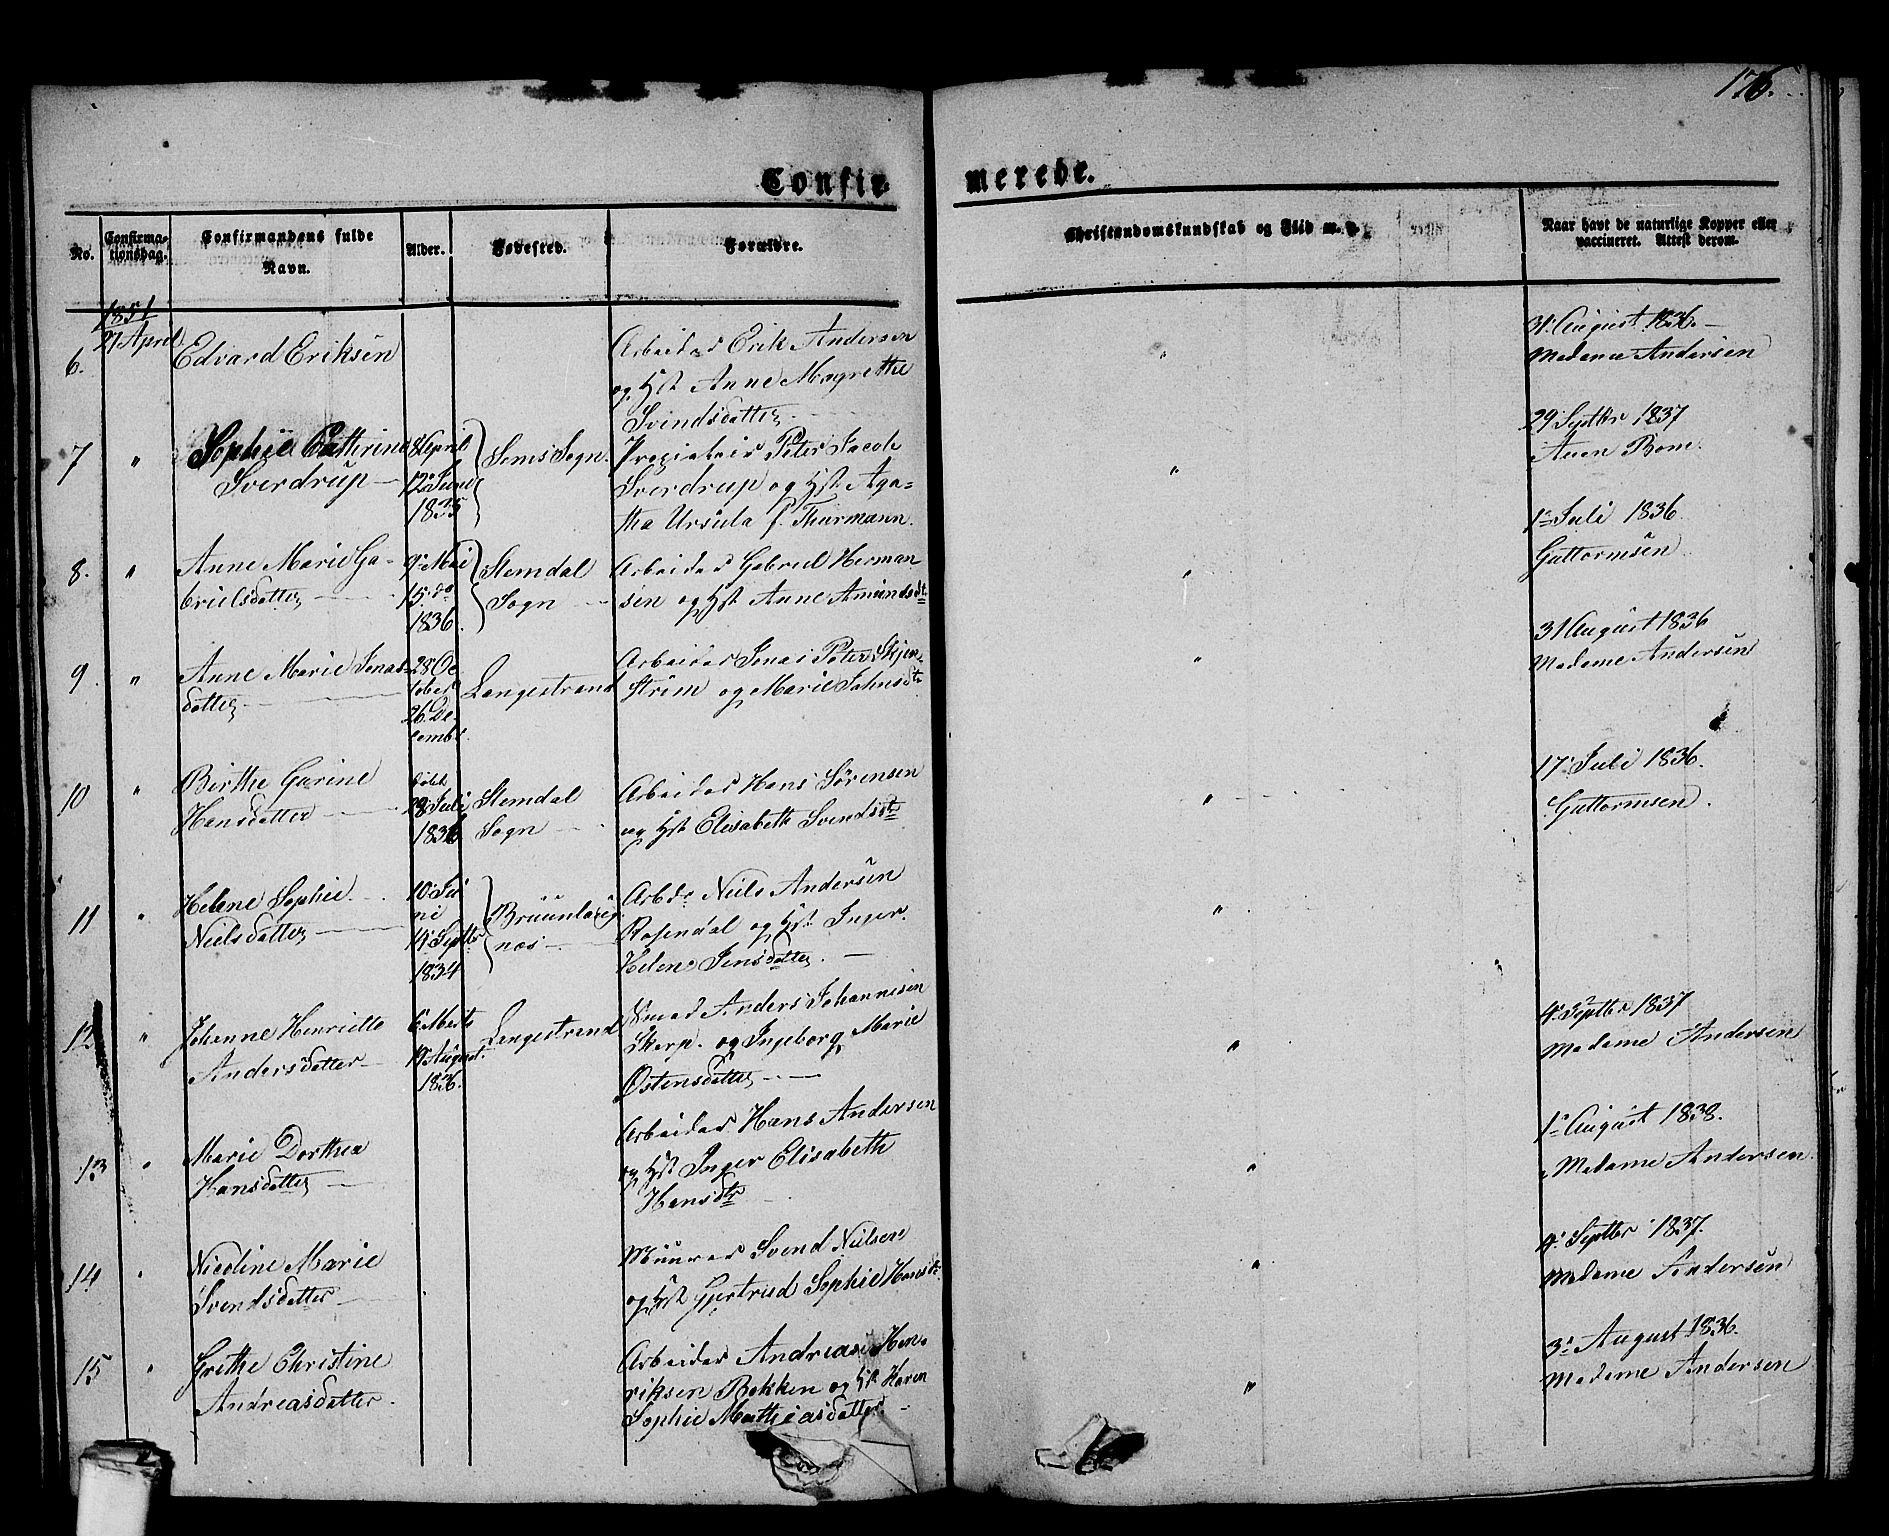 176.
Confir
merede.
No.
Confirma-
tionsdag.
Confirmandens fulde
Navn.
Alder.
Fødested.
Forældre.
Christendomskundskab og Flid m. v.
Naar havt de naturlige Kopper eller
vaccineret. Attest derom.
1851
27 April
6.
Edvard Eriksen
Arbeider Erik Andersen
og Hst Anne Magrethe
Svindsdatter
31 August 1836.
Madame Andersen
7 "
Sophie Cathrine
Sverdrup
8 April
12 Juni
1835
Sems Sogn.
Peter Jacob
Sverdrup og Hst Aga-
tha Ursula f. Thurmann.
"
29 Septbr 1837
Auen Bom.
8. "
Anne Marie Ga-
brielsdatter
9 Mai
15 do
1836.
Slemdal
Sogn
Arbeider Gabriel Herman
sen og Hst Anne Amundsdt.
"
1 Juli 1836.
Guttormsen
9 "
Anne Marie Jonas-
datter
28 Oc
tober
26 De-
cembr.
Langestrand
Arbeider Jonas Peter Skjen-
strøm og Marie Jahnsdt
"
31 August 1836
Madame Andersen
10 "
Birthe Gurine
Hansdatter
28 Juli
1836
Slemdal
Sogn
Arbeider Hans Sörensen
og Hst Elisabeth Svendsdt
"
17 Juli 1836.
Guttormsen.
11 "
Helene Sophie
Nielsdatter
10 Ju
ni
14 Septbr
1834
Bruunlaug
næs
Arbdr Niels Andersen
Rosendal og Hst Inger
Helene Jensdatter.
"
12 "
Johanne Henriette
Andersdatter
6 Marts
19 August.
1836.
Langestrand
Anders Johannesen
Skarp. og Ingeborg Marie
Ostensdatter
"
4 Septbr 1837
Madame Andersen
13 "
Marie Dorthea
Hansdatter
Arbeider Hans Andersen
og Hst Inger Elisabeth
Hansdtr
"
1 August 1838.
Madame Andersen.
14 "
Nicoline Marie
Svendsdatter
Muurer Svend Nielsen
og Hst Gjertrud Sophie Hansdr.
"
4 Septbr 1837.
Madame Andersen
15 "
Grethe Christine
Andreasdatter.
Arbeider Andreas Hen-
riksen Bakken og Hst Karen
Sophie Mathiasdatter.
"
3 August 1836.
Madame Andersen